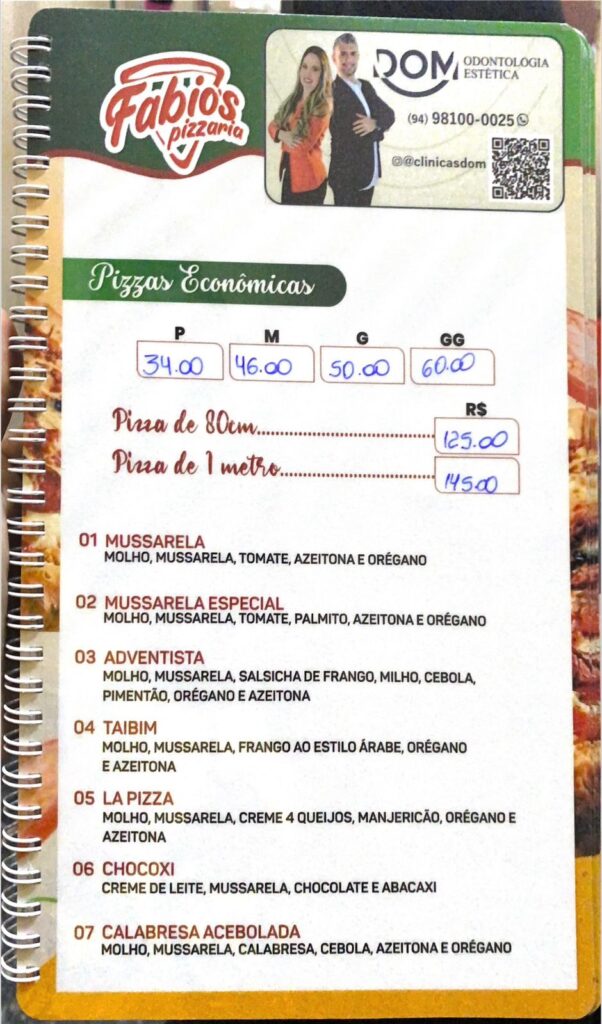 Fabio's
pizzaria
DOM ODONTOLOGIA
ESTÉTICA
(94) 98100-0025
@@clinicasdom
Pizzas Econômicas
P M G GG
34.00 46.00 50.00 60.00
R$
Pizza de 80cm............................................ 125.00
Pizza de 1 metro....................................... 145.00
01 MUSSARELA
MOLHO, MUSSARELA, TOMATE, AZEITONA E ORÉGANO
02 MUSSARELA ESPECIAL
MOLHO, MUSSARELA, TOMATE, PALMITO, AZEITONA E ORÉGANO
03 ADVENTISTA
MOLHO, MUSSARELA, SALSICHA DE FRANGO, MILHO, CEBOLA,
PIMENTÃO, ORÉGANO E AZEITONA
04 TAIBIM
MOLHO, MUSSARELA, FRANGO AO ESTILO ÁRABE, ORÉGANO
E AZEITONA
05 LA PIZZA
MOLHO, MUSSARELA, CREME 4 QUEIJOS, MANJERICÃO, ORÉGANO E
AZEITONA
06 CHOCOXI
CREME DE LEITE, MUSSARELA, CHOCOLATE E ABACAXI
07 CALABRESA ACEBOLADA
MOLHO, MUSSARELA, CALABRESA, CEBOLA, AZEITONA E ORÉGANO